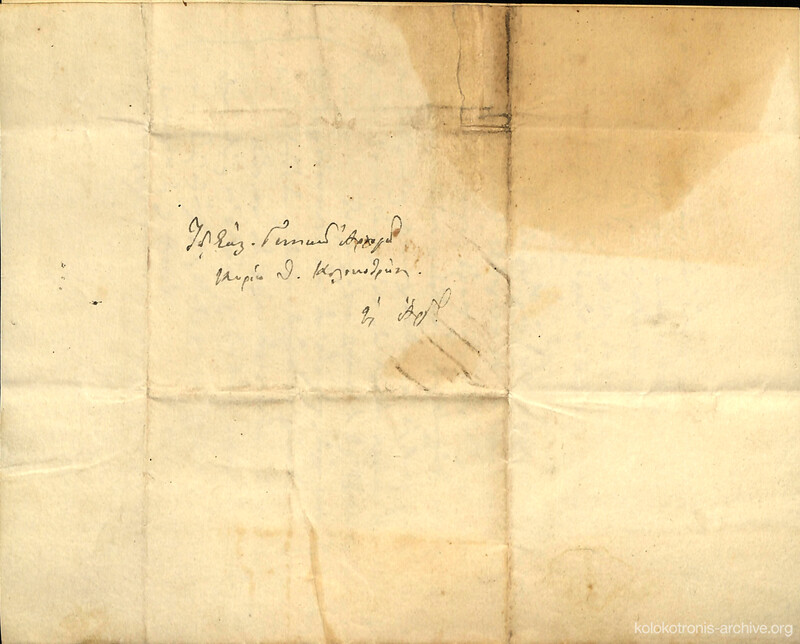 Τῷ Ἐκλ. Γενικῷ Ἀρχηγῷ
Κυρίῳ Θ. Κολοκοτρώνῃ.
εἰς Ἄργος
kolokotronis-archive.org